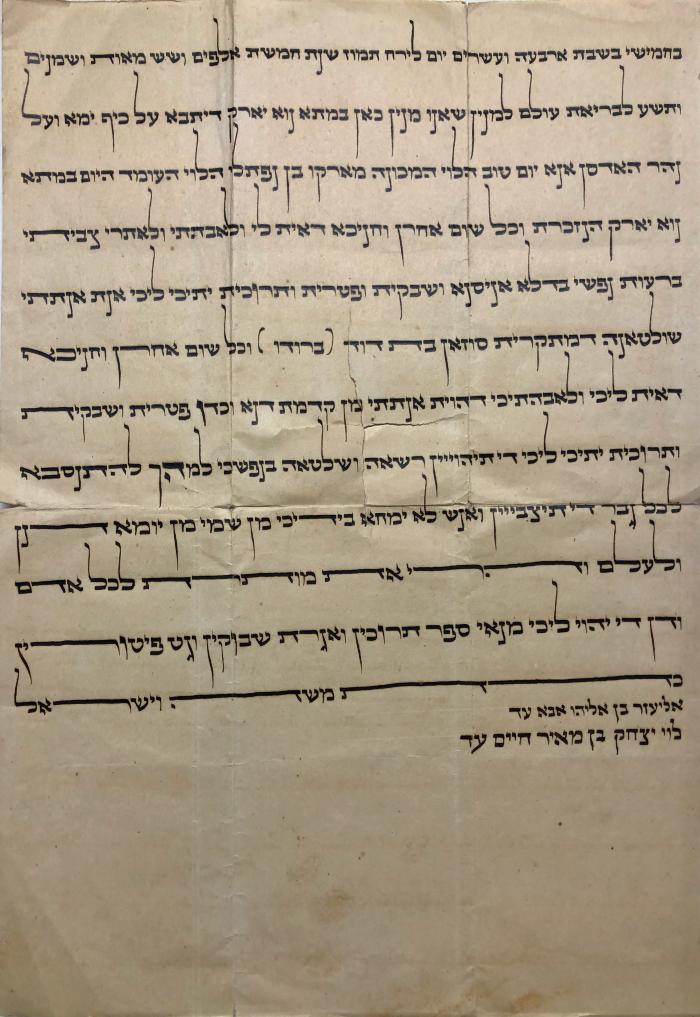 בחמישי בשבת ארבעה ועשרים יום לירח תמוז שנת חמשת אלפים ושש מאות ושמנים
ותשע לבריאת עולם למנין שאנו מנין כאן במתא נוא יארק דיתבא על כיף ימא ועל
נהר האדסן אנא יום טוב הלוי המכונה מארקו בן נפתלי הלוי העומד היום במתא
נוא יארק הנזכרת וכל שום אחרן וחניכא דאית לי ולאבהתי ולאתרי צביתי
ברעות נפשי בדלא אניסנא ושבקית ופטרית ותרוכית יתיכי ליכי אנת אנתתי
שולטאנה דמתקרית סוזאן בת דוד (ברודו) וכל שום אחרן וחניכא
דאית ליכי ולאבהתיכי דהוית אנתתי מן קדמת דנא וכדו פטרית ושבקית
ותרוכית יתיכי ליכי די תיהוייין רשאה ושלטאה בנפשכי למהך להתנסבא
לכל גבר די תיצבייין ואנש לא ימחא בידיכי מן שמי מן יומא דנן
ולעלם והרי את מותרת לכל אדם
ודן די יהוי ליכי מנאי ספר תרוכין ואגרת שבוקין וגט פיטורין
כדת משה וישראל
אליעזר בן אליהו אבא עד
לוי יצחק בן מאיר חיים עד